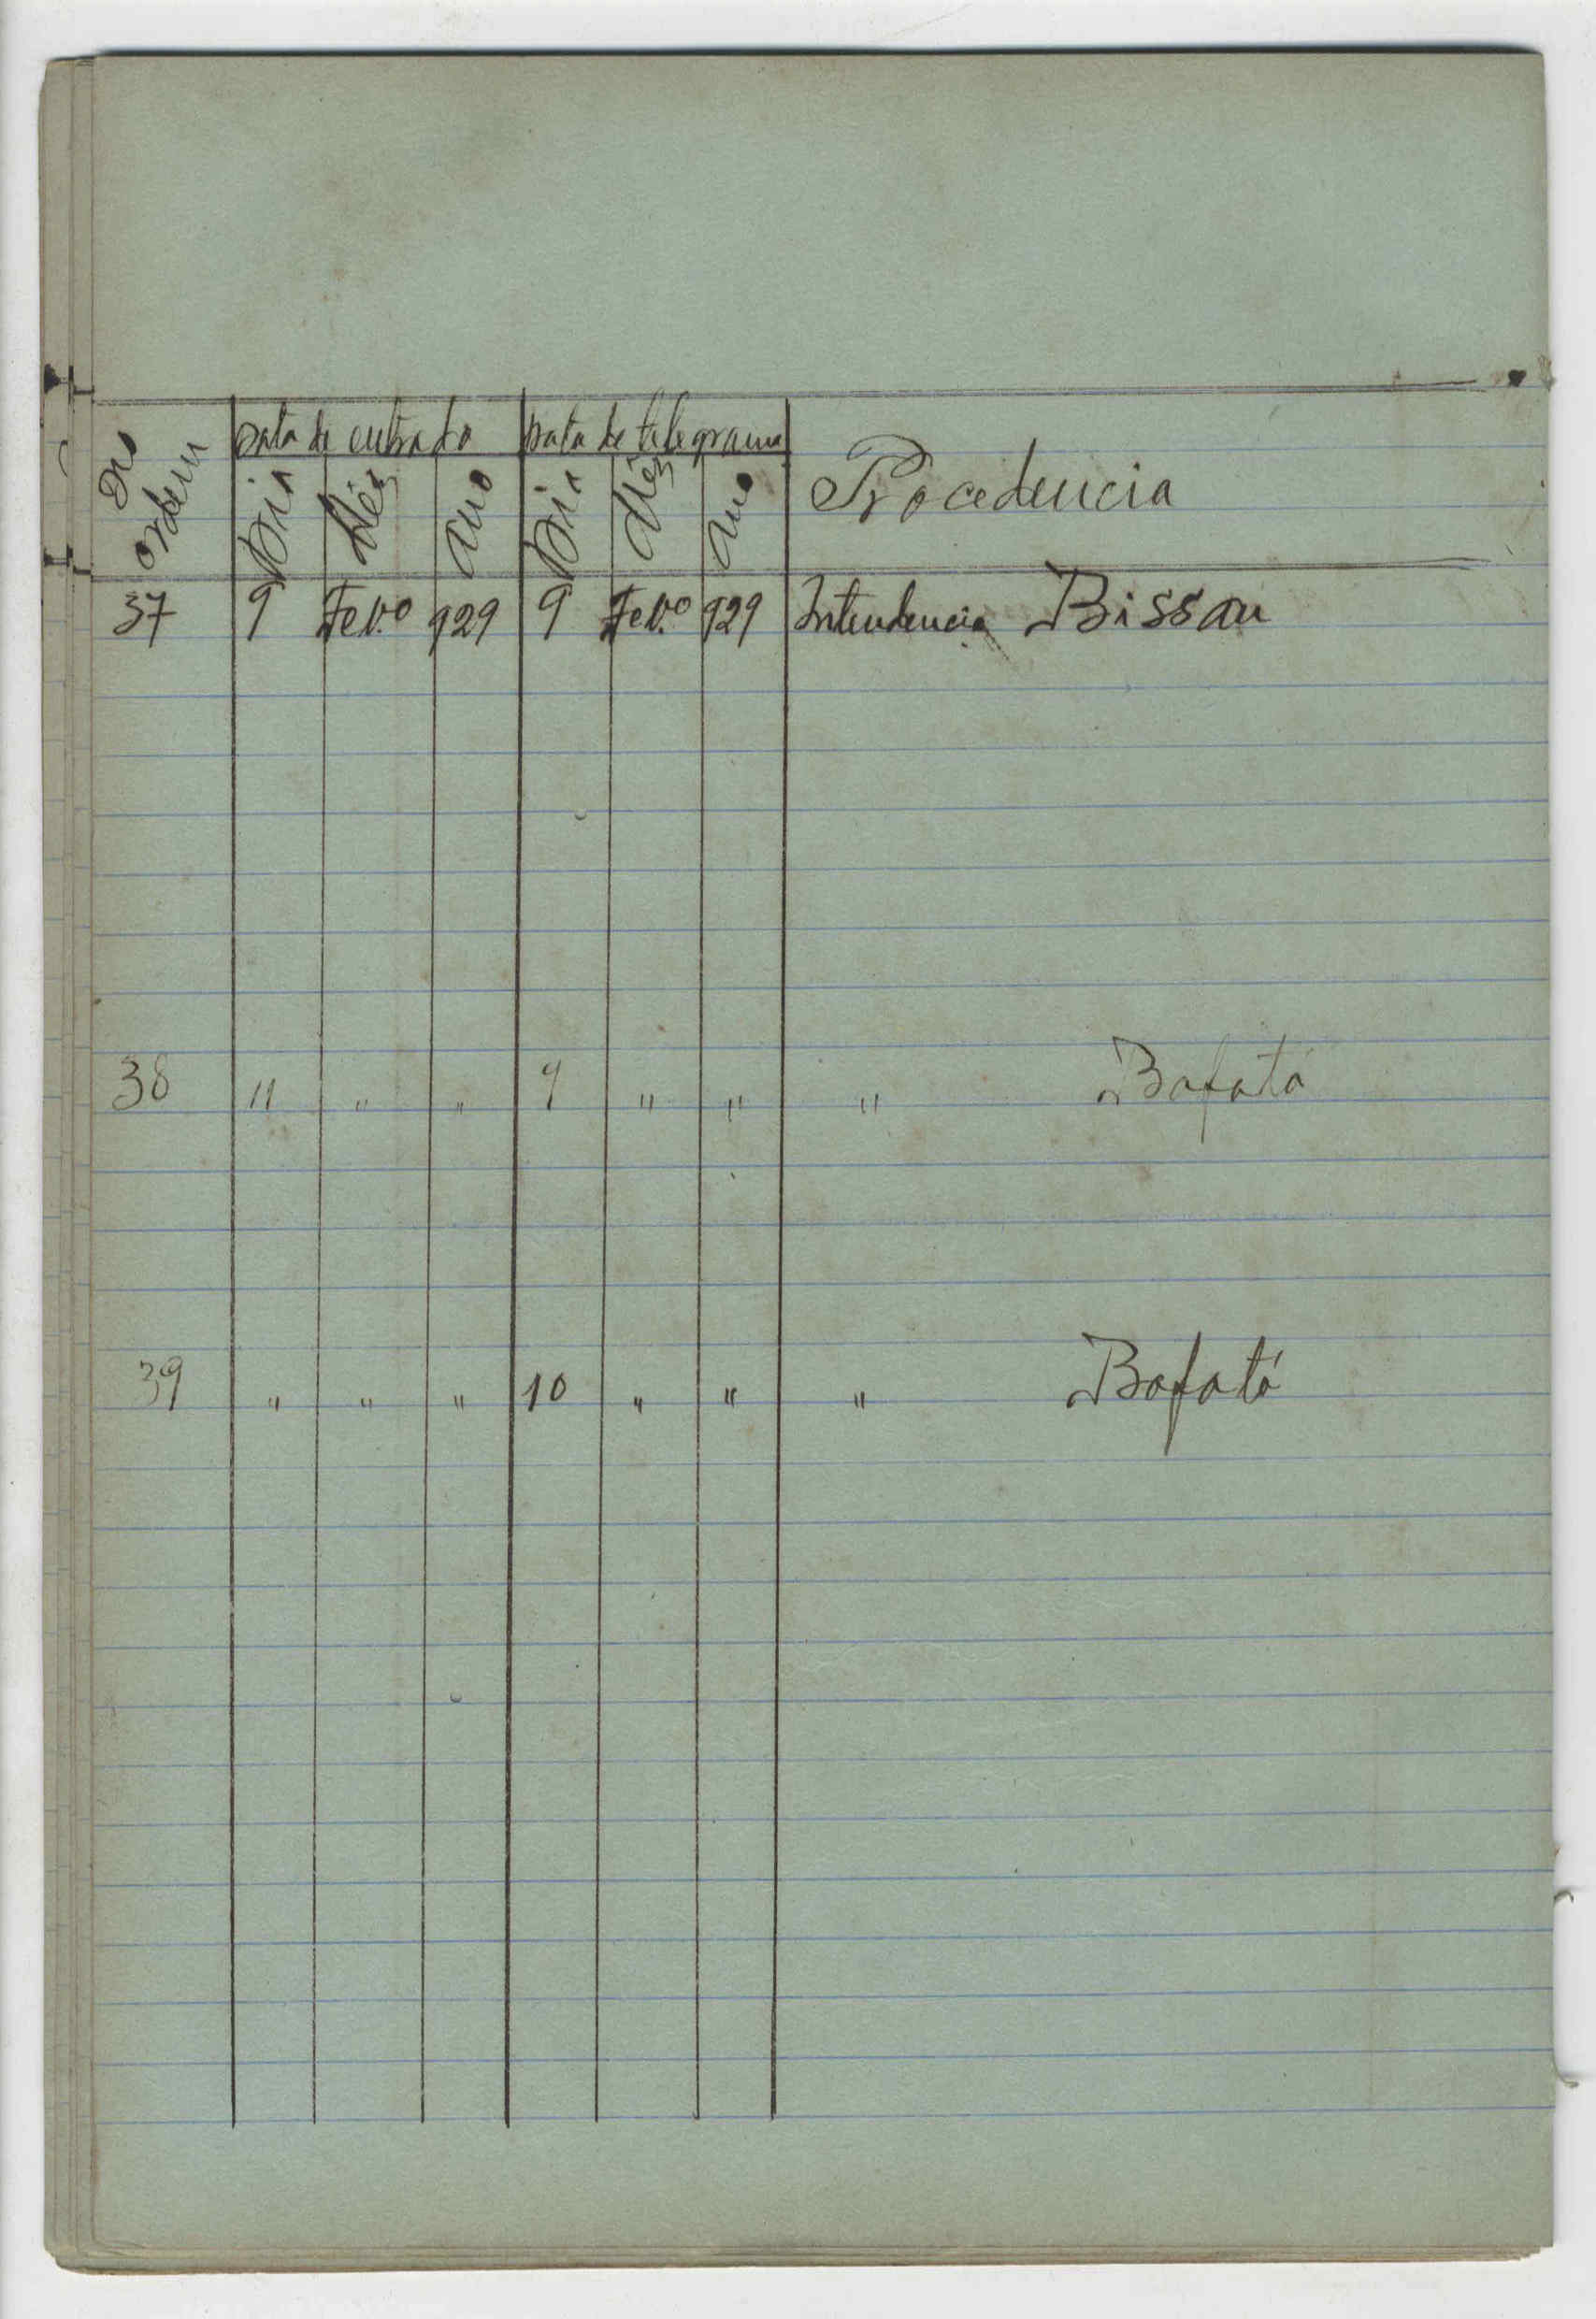 Data de entrada Data de telegrama
Nº ordem Dia Mês Ano Dia Mês Ano Procedencia
37 9 Fev.º 929 9 Fev.º 929 Intendencia Bissau
38 11 " " 9 " " " Bafatá
39 " " " 10 " " " Bafatá